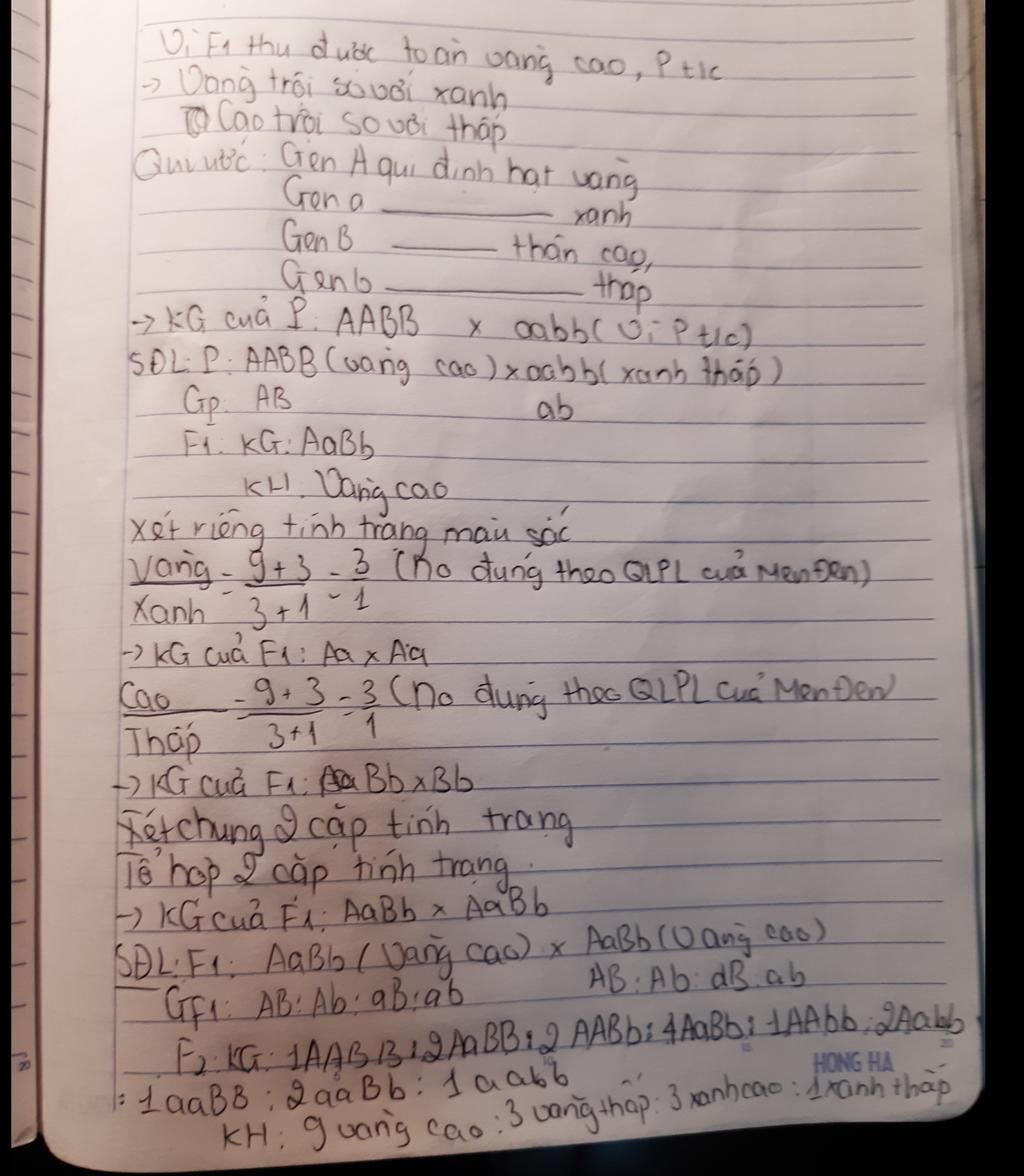 Vì F1 thu được toàn vàng cao, Ptlc
→ Vàng trội so với xanh
Cao trội so với thấp
Qui ước: Gen A qui định hạt vàng
Gen a ——— xanh
Gen B ——— thân cao,
Gen b ——— thấp
→ KG của P: AABB x aabb (Vì Ptlc)
SĐL: P: AABB (vàng cao) x aabb (xanh thấp)
Gp: AB ab
F1: KG: AaBb
KH: Vàng cao
Xét riêng tính trạng màu sắc
Vàng/Xanh = 9+3/3+1 = 3/1 (No đúng theo QLPL của MenĐen)
→ KG của F1: Aa x Aa
Cao/Thấp = 9+3/3+1 = 3/1 (No đúng theo QLPL của MenĐen)
→ KG của F1: Bb x Bb
Xét chung 2 cặp tính trạng
Tổ hợp 2 cặp tính trạng.
→ KG của F1: AaBb x AaBb
SĐL: F1: AaBb (Vàng cao) x AaBb (Vàng cao)
GF1: AB: Ab: aB: ab AB: Ab: aB: ab
F2: KG: 1AABB: 2AaBB: 2AABb: 4AaBb: 1AAbb: 2Aabb
: 1aaBB: 2aaBb: 1aabb
HONG HA
KH: 9 vàng cao: 3 vàng thấp: 3 xanh cao: 1 xanh thấp